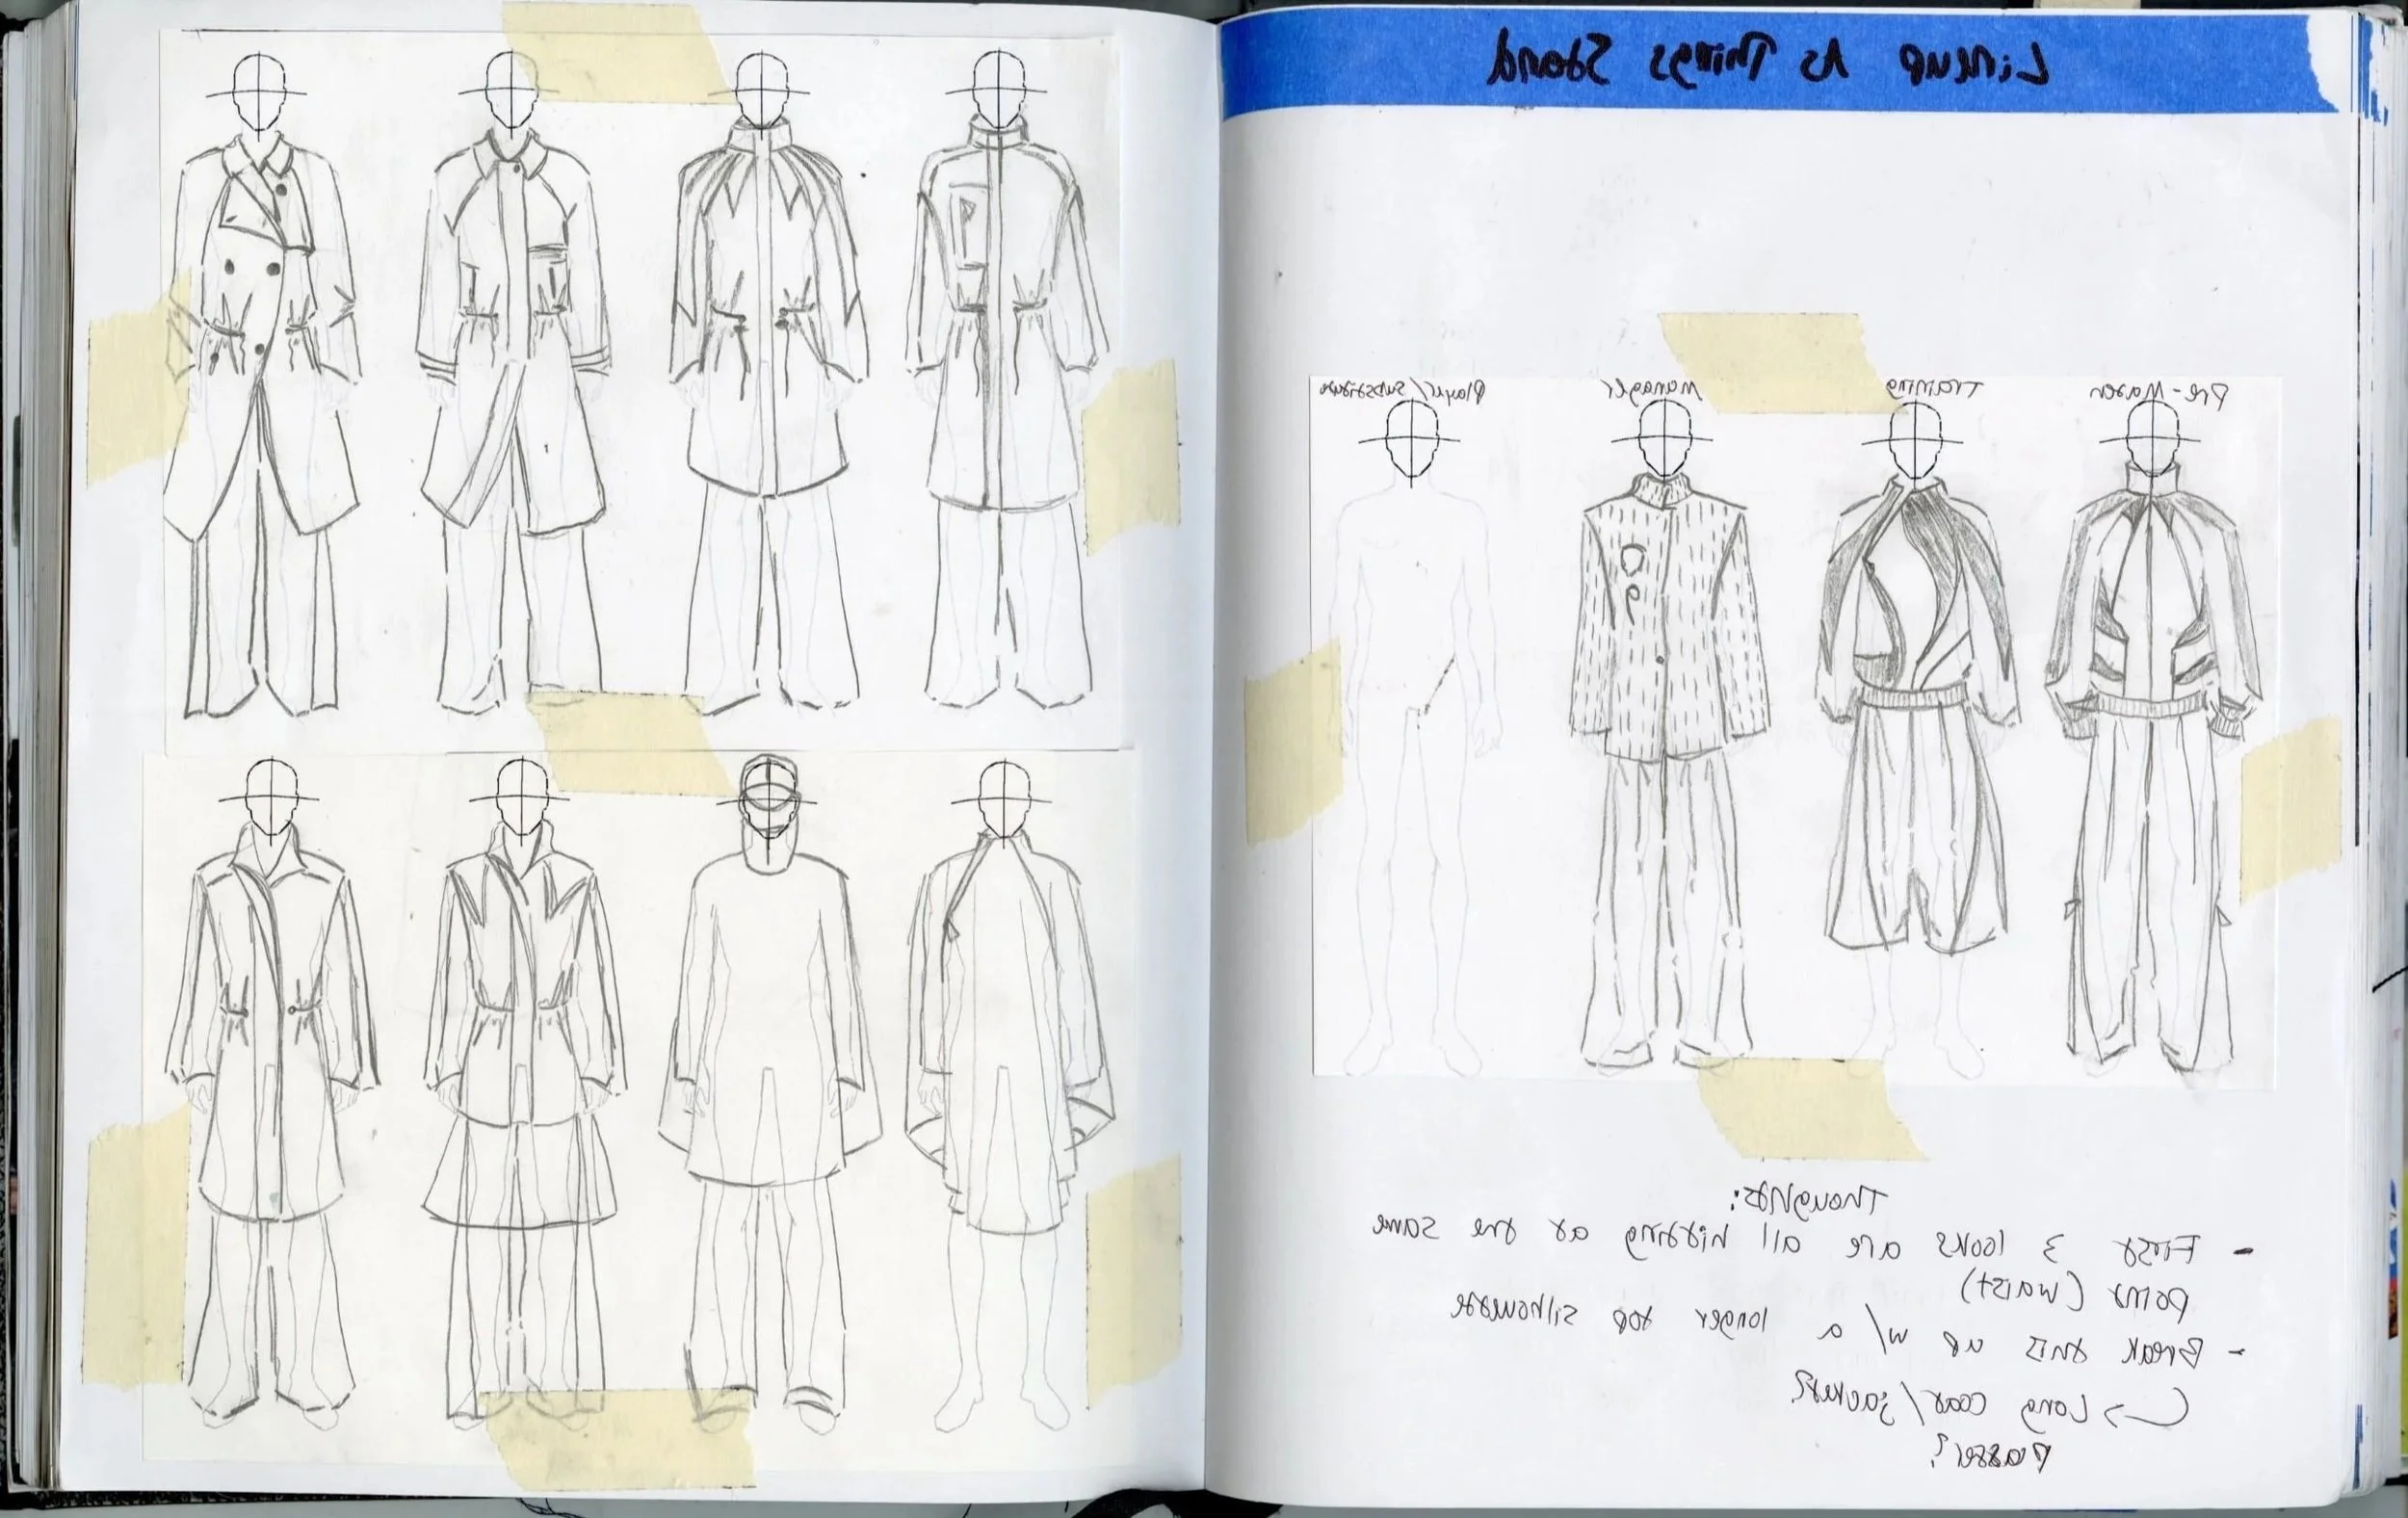 Lineup As Things Stand
Pre-Match Training Manager Player/Substitute
Thoughts:
- First 3 looks are all hitting at the same
point (waist)
- Break this up w/ a longer top silhouette
↳ Long coat/jacket?